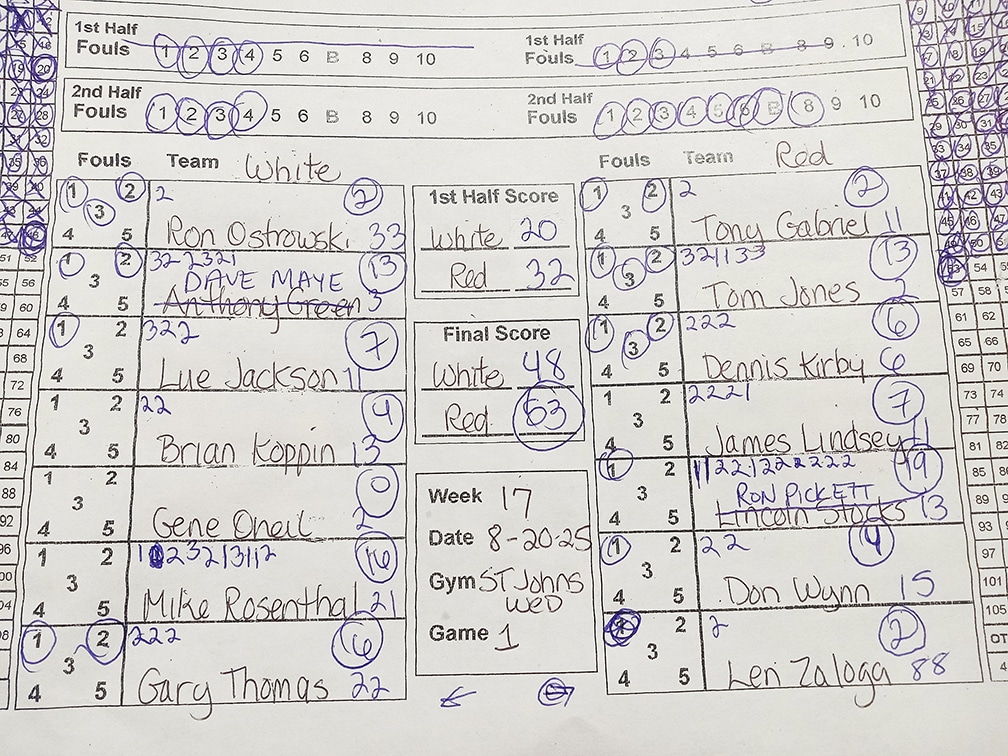 1st Half
Fouls 1 2 3 4 5 6 B 8 9 10
1st Half
Fouls 1 2 3 4 5 6 B 8 9 10
2nd Half
Fouls 1 2 3 4 5 6 B 8 9 10
2nd Half
Fouls 1 2 3 4 5 6 B 8 9 10
Fouls Team White
1 2 3 4 5
2 2
Ron Ostrowski 33
1 2 3 4 5
322321 13
DAVE MAYE
Anthony Green 3
1 2 3 4 5
322 7
Lue Jackson 11
1 2 3 4 5
22 4
Brian Koppin 13
1 2 3 4 5
0
Gene Oneil 2
1 2 3 4 5
16
Mike Rosenthal 21
1 2 3 4 5
222 6
Gary Thomas 22
1st Half Score
White 20
Red 32
Final Score
White 48
Red 53
Week 17
Date 8-20-25
Gym ST Johns
WED
Game 1
Fouls Team Red
1 2 3 4 5
2 2
Tony Gabriel 11
1 2 3 4 5
321133 13
Tom Jones 2
1 2 3 4 5
222 6
Dennis Kirby 6
1 2 3 4 5
2221 7
James Lindsey 11
1 2 3 4 5
19
RON PICKETT
Lincoln Stocks 13
1 2 3 4 5
22 4
Don Wynn 15
1 2 3 4 5
2 2
Len Zaloga 88
51 52
55 56
60
64
68
72
76
80
84
88
92
96
53 54
57 58
61 62
65 66
69 70
73 74
77 78
81 82
85
89
93
97
101
105
OT